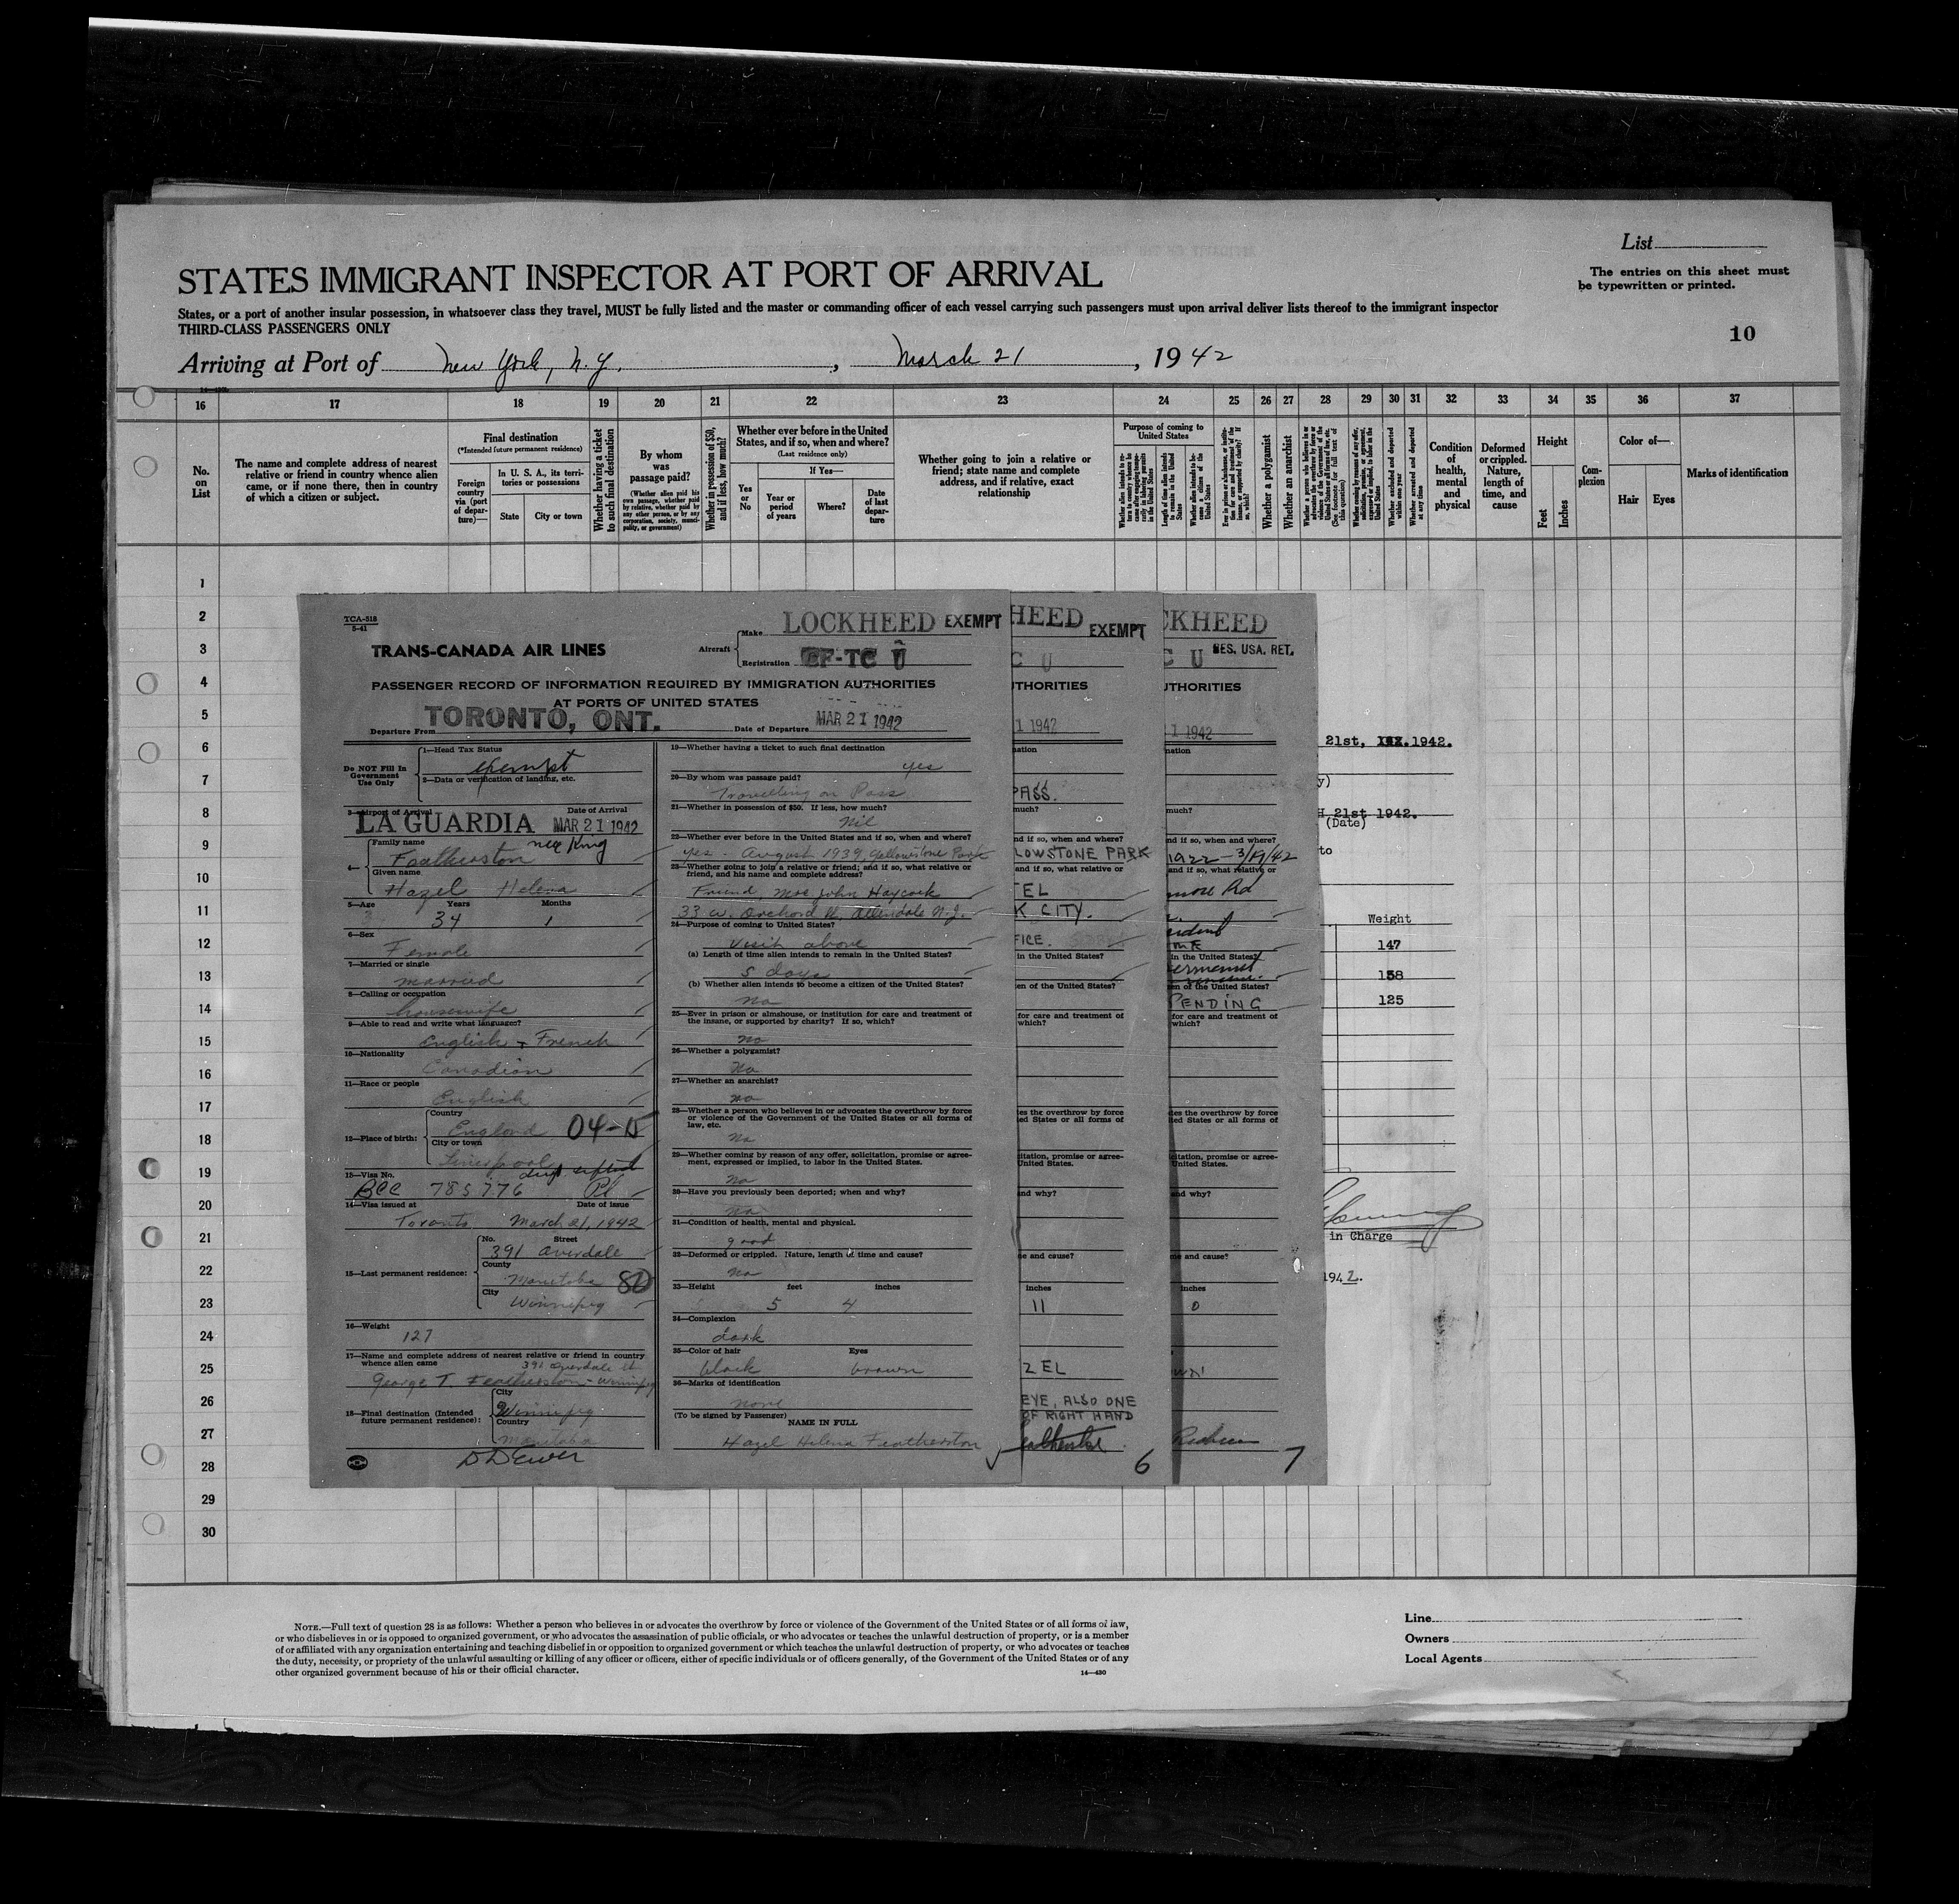 List
STATES IMMIGRANT INSPECTOR AT PORT OF ARRIVAL
The entries on this sheet must
be typewritten or printed.
States, or a port of another insular possession, in whatsoever class they travel, MUST be fully listed and the master or commanding officer of each vessel carrying such passengers must upon arrival deliver lists thereof to the immigrant inspector
THIRD-CLASS PASSENGERS ONLY
10
Arriving at Port of New York, N.Y., March 21, 1942
16 17 18 19 20 21 22 23 24 25 26 27 28 29 30 31 32 33 34 35 36 37
No. on List
The name and complete address of nearest relative or friend in country whence alien came, or if none there, then in country of which a citizen or subject.
Final destination
(*Intended future permanent residence)
Foreign country via (port of departure)—
In U. S. A., its territories or possessions
State
City or town
Whether having a ticket to such final destination
By whom was passage paid?
(Whether alien paid his own passage, whether paid by relative, whether paid by any other person, or by any corporation, society, municipality, or government)
Whether in possession of $50, and if less, how much?
Whether ever before in the United States, and if so, when and where?
(Last residence only)
Yes or No
If Yes—
Year or period of years
Where?
Date of last departure
Whether going to join a relative or friend; state name and complete address, and if relative, exact relationship
Purpose of coming to United States
Length of time alien intends to remain in the United States
Whether a polygamist
Whether an anarchist
Condition of health, mental and physical
Deformed or crippled. Nature, length of time, and cause
Height
Feet
Inches
Complexion
Color of—
Hair
Eyes
Marks of identification
1
2
3
4
5
6
7
8
9
10
11
12
13
14
15
16
17
18
19
20
21
22
23
24
25
26
27
28
29
30
TCA-518
5-41
TRANS-CANADA AIR LINES
Aircraft
Make LOCKHEED EXEMPT
Registration CF-TC U
PASSENGER RECORD OF INFORMATION REQUIRED BY IMMIGRATION AUTHORITIES
AT PORTS OF UNITED STATES
Departure From TORONTO, ONT. Date of Departure MAR 21 1942
Do NOT Fill In Government Use Only
1—Head Tax Status
exempt
2—Data or verification of landing, etc.
3—Airport of Arrival Date of Arrival
LA GUARDIA MAR 21 1942
4—
Family name nee King
Featherston
Given name
Hazel Helena
5—Age Years Months
34 1
6—Sex
Female
7—Married or single
married
8—Calling or occupation
housewife
9—Able to read and write what languages?
English + French
10—Nationality
Canadian
11—Race or people
English
12—Place of birth:
Country
England 04-
City or town
Liverpool
13—Visa No.
BCC 785776
14—Visa issued at Date of issue
Toronto March 21, 1942
15—Last permanent residence:
No. Street
391 Overdale
County
Manitoba 80
City
Winnipeg
16—Weight
127
17—Name and complete address of nearest relative or friend in country whence alien came
391 Overdale St.
George T. Featherston - Winnipeg
18—Final destination (Intended future permanent residence):
City
Winnipeg
Country
Manitoba
19—Whether having a ticket to such final destination
yes
20—By whom was passage paid?
Travelling on Pass
21—Whether in possession of $50. If less, how much?
Nil
22—Whether ever before in the United States and if so, when and where?
yes - August 1939, Yellowstone Park
23—Whether going to join a relative or friend; and if so, what relative or friend, and his name and complete address?
Friend, Mrs John Haycock
33 W. Orchard St, Allendale N.J.
24—Purpose of coming to United States?
visit above
(a) Length of time alien intends to remain in the United States?
5 days
(b) Whether alien intends to become a citizen of the United States?
no
25—Ever in prison or almshouse, or institution for care and treatment of the insane, or supported by charity? If so, which?
no
26—Whether a polygamist?
No
27—Whether an anarchist?
no
28—Whether a person who believes in or advocates the overthrow by force or violence of the Government of the United States or all forms of law, etc.
No
29—Whether coming by reason of any offer, solicitation, promise or agreement, expressed or implied, to labor in the United States.
no
30—Have you previously been deported; when and why?
no
31—Condition of health, mental and physical.
good
32—Deformed or crippled. Nature, length of time and cause?
no
33—Height feet inches
5 4
34—Complexion
dark
35—Color of hair Eyes
black brown
36—Marks of identification
none
(To be signed by Passenger) NAME IN FULL
Hazel Helena Featherston
HEED EXEMPT
C U
UTHORITIES
1 1942
PASS.
LOWSTONE PARK
TEL
K CITY.
FICE.
11
ZEL
EYE, ALSO ONE
OF RIGHT HAND
6
CKHEED
C U RES. USA. RET.
UTHORITIES
1 1942
1922 - 3/19/42
PENDING
0
7
21st, 1942.
H 21st 1942.
(Date)
to
Weight
147
158
125
in Charge
1942.
NOTE.—Full text of question 28 is as follows: Whether a person who believes in or advocates the overthrow by force or violence of the Government of the United States or of all forms of law,
or who disbelieves in or is opposed to organized government, or who advocates the assassination of public officials, or who advocates or teaches the unlawful destruction of property, or is a member
of or affiliated with any organization entertaining and teaching disbelief in or opposition to organized government or which teaches the unlawful destruction of property, or who advocates or teaches
the duty, necessity, or propriety of the unlawful assaulting or killing of any officer or officers, either of specific individuals or of officers generally, of the Government of the United States or of any
other organized government because of his or their official character.
14—430
Line
Owners
Local Agents